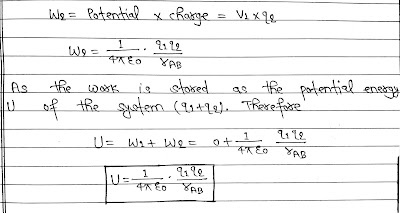 W₂ = Potential x charge = V₁ x q₂
W₂ = 1/4πε0 · q₁q₂/rAB
As the work is stored as the potential energy
U of the system (q₁+q₂). Therefore
U = W₁ + W₂ = 0 + 1/4πε0 q₁q₂/rAB
U = 1/4πε0 · q₁q₂/rAB